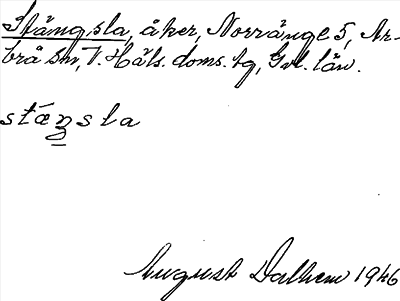 Stängsla, åker, Norränge 5, Ar-
brå sn, V. Häls. doms. tg, Gvl. län.
stáŋsla
August Dalhem 1946